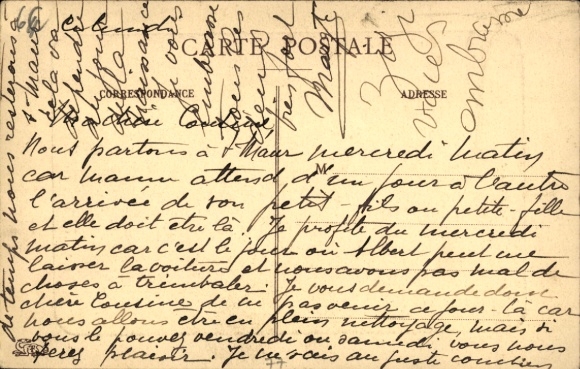 CARTE POSTALE
CORRESPONDANCE
ADRESSE
M
Ma chère Cousine,
Nous partons à St Maur mercredi matin
car maman attend d'un jour à l'autre
l'arrivée de son petit-fils ou petite-fille
et elle doit être là. Je profite du mercredi
matin car c'est le jour où Albert peut me
laisser la voiture et nous avons pas mal de
choses à trimbaler. Je vous demande donc
chère Cousine de ne pas venir ce jour-là car
nous allons être en plein nettoyage, mais si
vous le pouvez vendredi ou samedi vous nous
ferez plaisir. Je ne sais au juste combien
de temps nous resterons à
St Maur
cela va
dépendre
de la
naissance
Je vous
embrasse
tous
bien fort
vous
embrasse